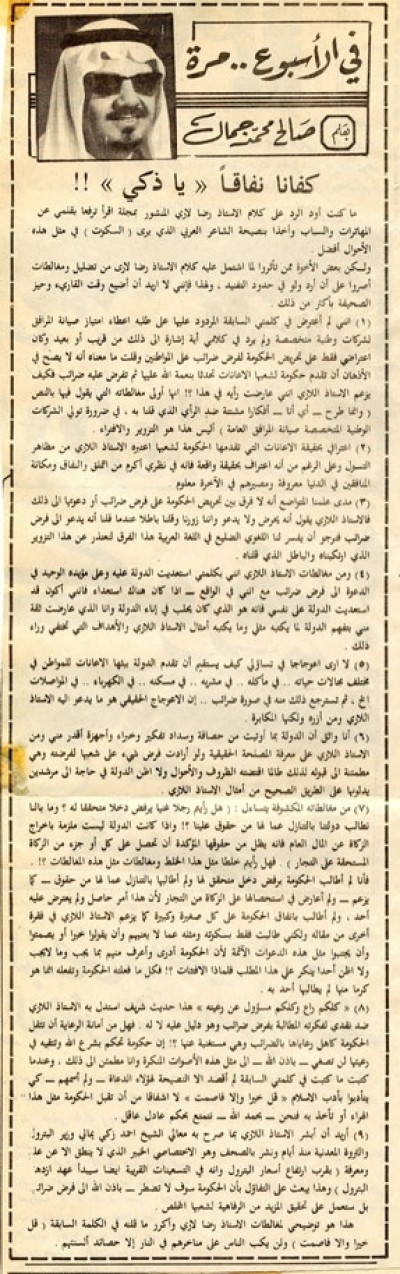 في الأسبوع .. مرة
بقلم صالح محمد جمال
كفانا نفاقاً « يا ذكي » !!
ما كنت أود الرد على كلام الاستاذ رضا لاري المنشور بمجلة اقرأ ترفعا بقلمي عن
المهاترات والسباب وأخذا بنصيحة الشاعر العربي الذي يرى ( السكوت ) في مثل هذه
الأحوال أفضل .
ولكن بعض الأخوة ممن تأثروا لما اشتمل عليه كلام الاستاذ رضا لاري من تضليل ومغالطات
أصروا على أن أرد ولو في حدود التفنيد ، ولهذا فإنني لا اريد أن أضيع وقت القاريء وحيز
الصحيفة بأكثر من ذلك .
(١) انني لم أعترض في كلمتي السابقة المردود عليها على طلبه اعطاء امتياز صيانة المرافق
لشركات وطنية متخصصة ولم يرد في كلامي أية إشارة الى ذلك من قريب أو بعيد وكان
اعتراضي فقط على تحريض الحكومة لفرض ضرائب على المواطنين وقلت ما معناه أنه لا يصح في
الأذهان أن تقدم حكومة لشعبها الاعانات تحدثا بنعمة الله عليها ثم تفرض عليه ضرائب فكيف
يزعم الاستاذ اللاري انني عارضت رأيه في هذا ؟! انها أولى مغالطاته التي يقول فيها بالنص
( وانما طرح ــ أي أنا ــ أفكارا مشتتة ضد الرأي الذي قلنا به ، في ضرورة تولي الشركات
الوطنية المتخصصة صيانة المرافق العامة ) أليس هذا هو التزوير والافتراء .
(٢) اعترافي بحقيقة الاعانات التي تقدمها الحكومة لشعبها اعتبره الاستاذ اللاري من مظاهر
التسول وعلى الرغم من أنه اعتراف بحقيقة واقعة فانه في نظري أكرم من التملق والنفاق ومكانة
المنافقين في الدنيا معروفة ومصيرهم في الآخرة معلوم .
(٣) مدى علمنا المتواضع أنه لا فرق بين تحريض الحكومة على فرض ضرائب أو دعوتها الى ذلك
فالاستاذ اللاري يقول أنه يحرض ولا يدعو واننا زورنا وقلنا باطلا عندما قلنا أنه يدعو الى فرض
ضرائب فنرجو أن يفسر لنا اللغوي الضليع في اللغة العربية هذا الفرق لنعتذر عن هذا التزوير
الذي ارتكبناه والباطل الذي قلناه .
(٤) ومن مغالطات الاستاذ اللاري انني بكلمتي استعديت الدولة عليه وعلى مؤيده الوحيد في
الدعوة الى فرض ضرائب مع انني في الواقع ــ اذا كان هناك استعداء فانني أكون قد
استعديت الدولة على نفسي فانه هو الذي كان يحلب في إناء الدولة وانا الذي عارضت ثقة
مني بتفهم الدولة لما يكتبه مثلي وما يكتبه أمثال الاستاذ اللاري والأهداف التي تختفي وراء
ذلك .
(٥) لا ارى اعوجاجا في تساؤلي كيف يستقيم أن تقدم الدولة بيتها الاعانات للمواطن في
مختلف مجالات حياته .. في مأكله .. في مشربه .. في مسكنه .. في الكهرباء .. في المواصلات
الخ ، ثم تسترجع ذلك منه في صورة ضرائب .. إن الاعوجاج الحقيقي هو ما يدعو اليه الاستاذ
اللاري ومن أزره ولكنها المكابرة .
(٦) أنا واثق أن الدولة بما أوتيت من حصافة وسداد تفكير وخبراء وأجهزة أقدر مني ومن
الاستاذ اللاري على معرفة المصلحة الحقيقية ولو أرادت فرض شيء على شعبها لفرضته وهي
مطمئنة الى قبوله لذلك طالما اقتضته الظروف والأحوال ولا اظن الدولة في حاجة الى مرشدين
يدلونها على الطريق الصحيح من أمثال الاستاذ اللاري .
(٧) من مغالطاته المكشوفة يتساءل : ( هل رأيتم رجلا غنيا يرفض دخلا متحققا له ؟ وما بالنا
نطالب دولتنا بالتنازل عما لها من حقوق علينا ؟! واذا كانت الدولة ليست ملزمة باخراج
الزكاة عن المال العام فانه يظل من حقوقها المؤكدة أن تحصل على كل أو جزء من الزكاة
المستحقة على التجار ) . فهل رأيتم خلطا مثل هذا الخلط ومغالطات مثل هذه المغالطات ؟! .
فأنا لم أطالب الحكومة برفض دخل متحقق لها ولم أطالبها بالتنازل عما لها من حقوق ــ كما
يزعم ــ ولم أعارض في استحصالها على الزكاة من التجار لأن هذا أمر حاصل ولم يعترض عليه
أحد ، ولم أطالب بانفاق الحكومة على كل صغيرة وكبيرة كما يزعم الاستاذ اللاري في فقرة
أخرى من مقاله ولكني طالبت فقط بسكوته ومثله عما لا يعنيهم وأن يقولوا خيرا أو يصمتوا
وأن يجتنبوا مثل هذه الدعوات الآثمة لأن الحكومة أدرى وأعرف منهم بما يجب وما لايجب
ولا اظن أحدا ينكر علي هذا المطلب فلماذا الافتئات ؟! فكل ما فعلته الحكومة وتفعله انما هو
كرما منها لم يطالبها أحد به .
(٨) « كلكم راع وكلكم مسؤول عن رعيته » هذا حديث شريف استدل به الاستاذ اللاري
ضد نقدي لفكرته المطالبة بفرض ضرائب وهو دليل عليه لا له . فهل من أمانة الرعاية أن تثقل
الحكومة كاهل رعاياها بالضرائب وهي مستغنية عنها ؟! إن حكومة تحكم بشرع الله وتتقيه في
رعيتها لن تصغي ــ باذن الله ــ الى مثل هذه الأصوات المنكرة وانا مطمئن الى ذلك ، وعندما
كتبت ما كتبت في كلمتي السابقة لم أقصد الا النصيحة لهؤلاء الدعاة ــ ولم أتهمهم ــ كي
يتأدبوا بأدب الاسلام « قل خيرا وإلا فاصمت » لا اشفاقا من أن تقبل الحكومة مثل هذا
الهراء أو تأخذ به فنحن ــ بحمد الله ــ نتمتع بحكم عادل عاقل .
(٩) أريد أن أبشر الاستاذ اللاري بما صرح به معالي الشيخ احمد زكي يماني وزير البترول
والثروة المعدنية منذ أيام ونشر بالصحف وهو الاختصاصي الخبير الذي لا ينطق الا عن علم
ومعرفة ( بقرب ارتفاع أسعار البترول وانه في التسعينات القريبة ايضا سيبدأ عهد ازدهار
البترول ) وهذا يبعث على التفاؤل بأن الحكومة سوف لا تضطر ــ باذن الله الى فرض ضرائب
بل ستعمل على تحقيق المزيد من الرفاهية لشعبها المخلص .
هذا هو توضيحي لمغالطات الاستاذ رضا لاري وأكرر ما قلته في الكلمة السابقة ( قل
خيرا والا فاصمت ) ولن يكب الناس على مناخرهم في النار إلا حصائد ألسنتهم .